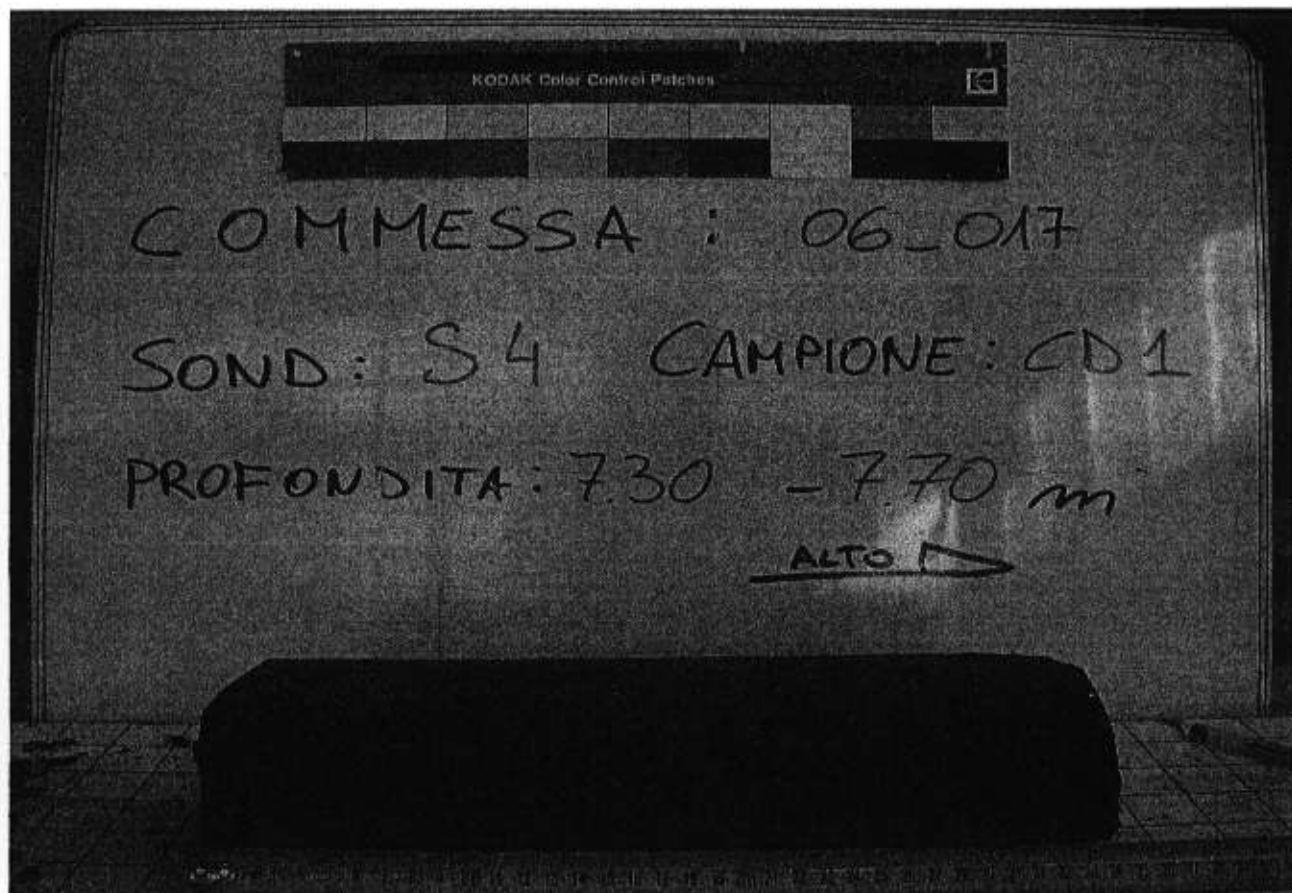 KODAK Color Control Patches
COMMESSA : 06_017
SOND: S4 CAMPIONE: CD1
PROFONDITA: 7.30 - 7.70 m
ALTO